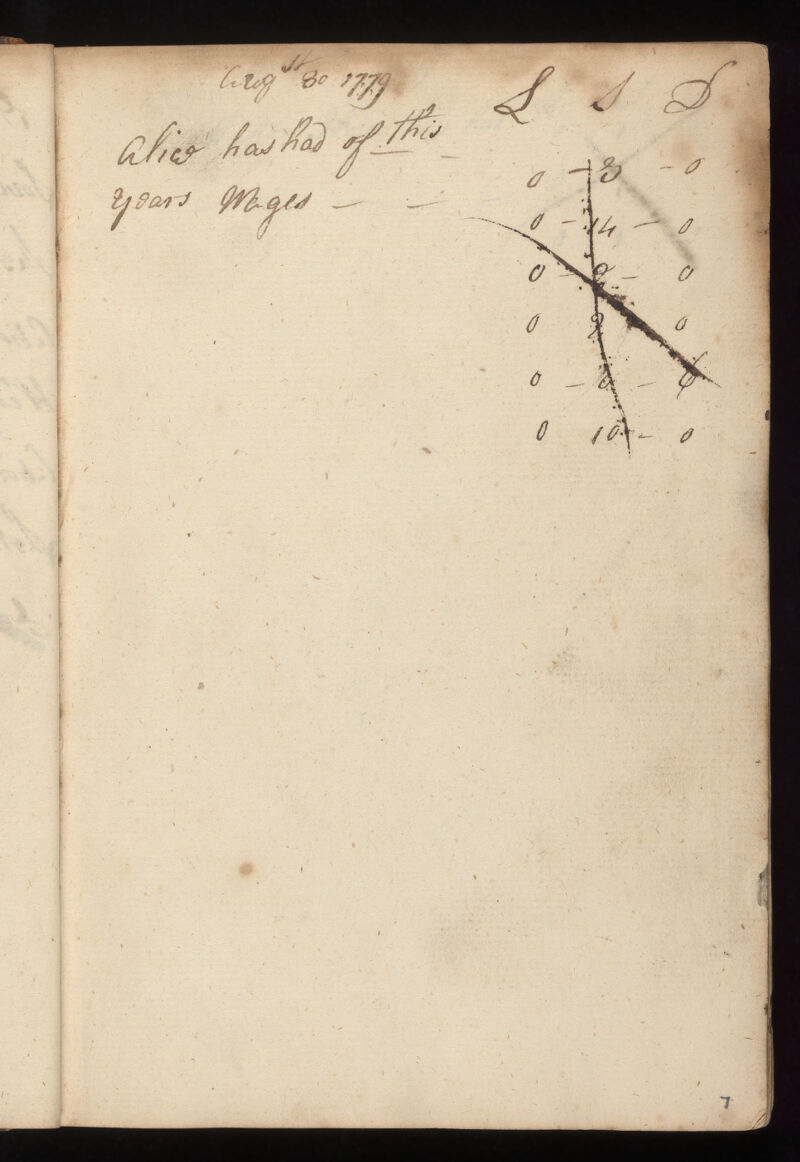 Augst 30 1779
L S D
Alice has had of this
years Wages — — 0 - 3 - 0
0 - 14 - 0
0 - 2 - 0
0 2 0
0 - - 6
0 10 - 0
7